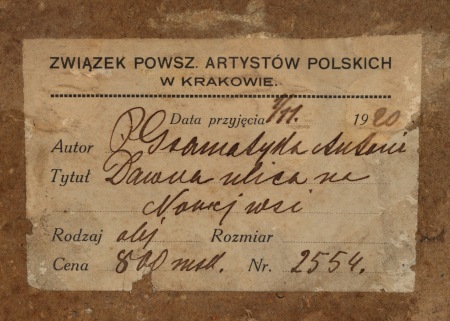 ZWIĄZEK POWSZ. ARTYSTÓW POLSKICH
W KRAKOWIE.
Data przyjęcia 1920
Autor P. Gramatyka Antoni
Tytuł Dawna ulica na
Nowej wsi
Rodzaj olej Rozmiar
Cena 800 mk. Nr. 2554.